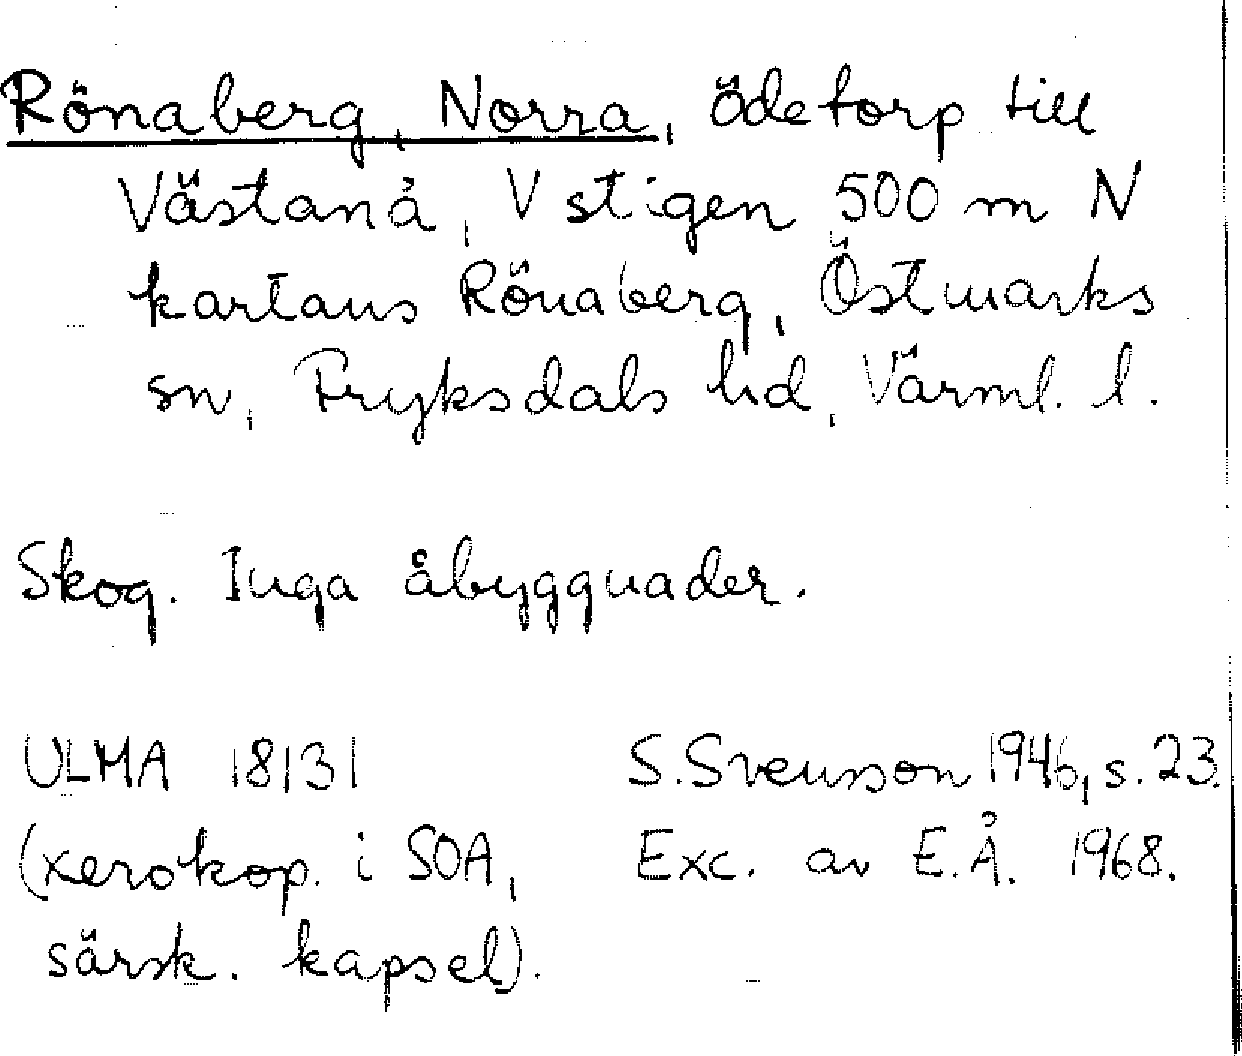 Rönaberg, Norra, ödetorp till
Västanå, V stigen 500 m N
kartans Rönaberg, Östmarks
sn, Fryksdals hd, Värml. l.
Skog. Inga åbyggnader.
ULMA 18131
(xerokop. i SOA,
särsk. kapsel).
S. Svensson 1946, s. 23.
Exc. av E.Å. 1968.